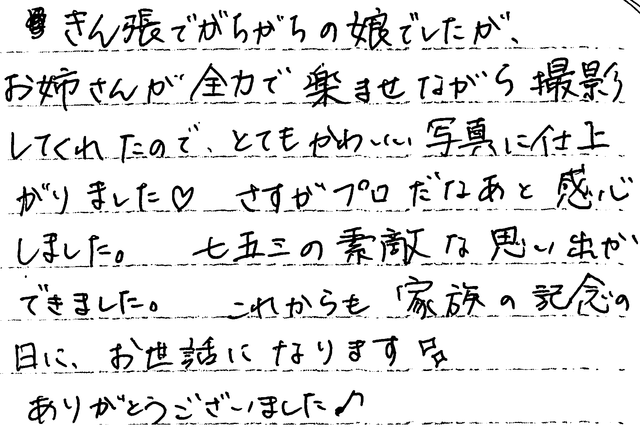 きん張でがちがちの娘でしたが、
お姉さんが全力で楽ませながら撮影
してくれたので、とてもかわいい写真に仕上
がりました♡ さすがプロだなあと感心
しました。 七五三の素敵な思い出が
できました。 これからも家族の記念の
日に、お世話になります
ありがとうございました♪